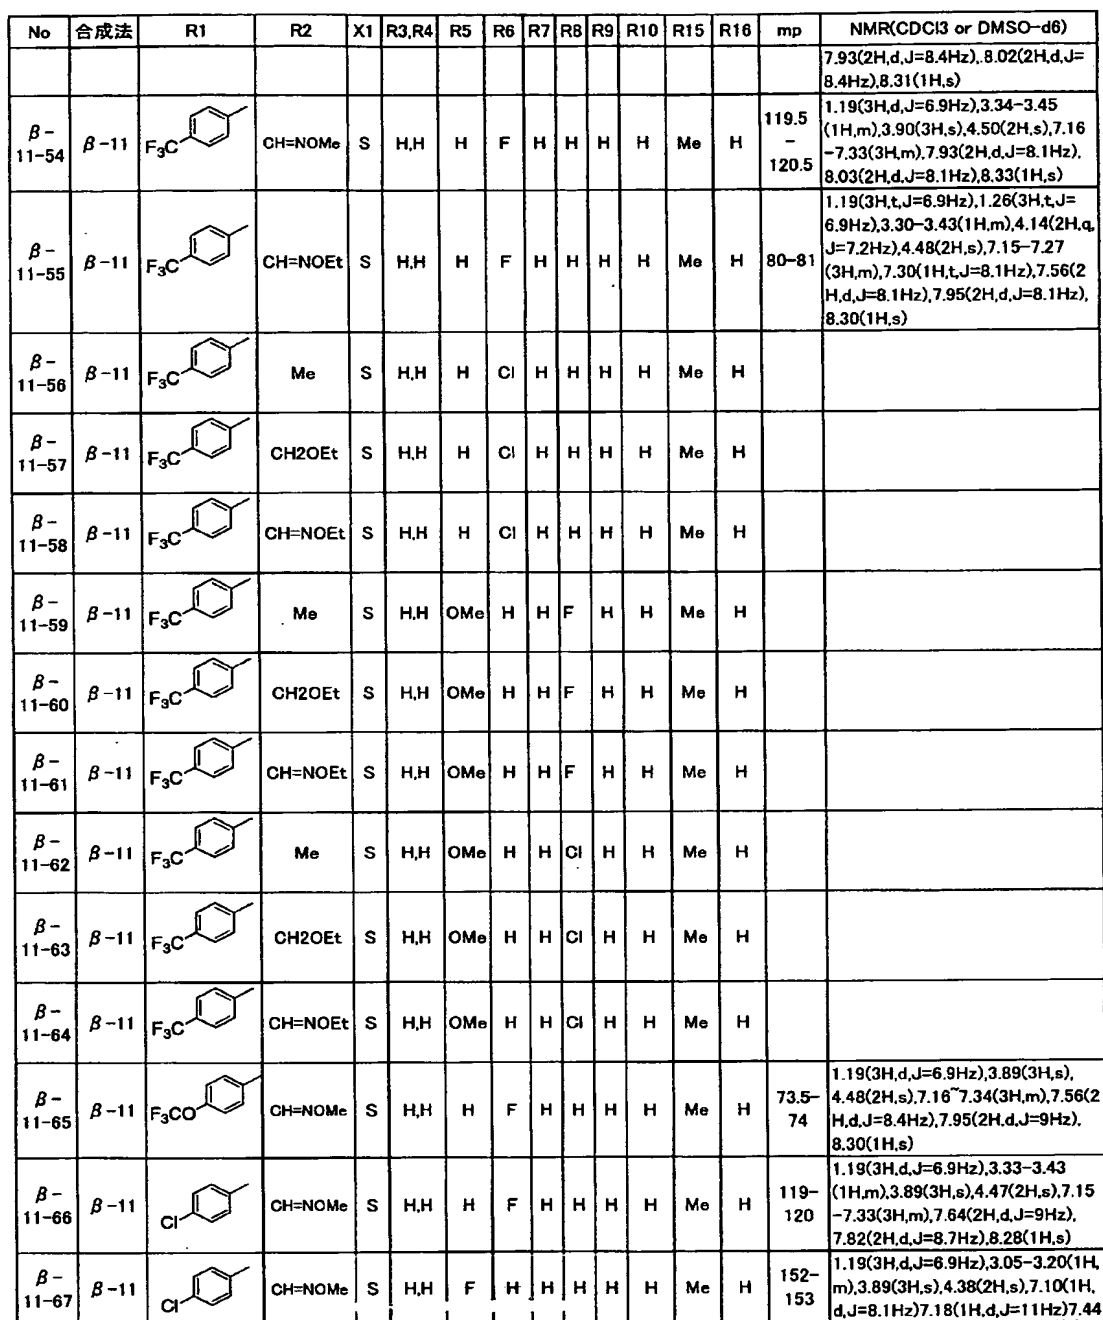 No 合成法 R1 R2 X1 R3,R4 R5 R6 R7 R8 R9 R10 R15 R16 mp NMR(CDCl3 or DMSO-d6)
7.93(2H,d,J=8.4Hz),8.02(2H,d,J=
8.4Hz),8.31(1H,s)
β-11-54 β-11 F3C CH=NOMe S H,H H F H H H H Me H 119.5-120.5 1.19(3H,d,J=6.9Hz),3.34-3.45
(1H,m),3.90(3H,s),4.50(2H,s),7.16
-7.33(3H,m),7.93(2H,d,J=8.1Hz),
8.03(2H,d,J=8.1Hz),8.33(1H,s)
β-11-55 β-11 F3C CH=NOEt S H,H H F H H H H Me H 80-81 1.19(3H,t,J=6.9Hz),1.26(3H,t,J=
6.9Hz),3.30-3.43(1H,m),4.14(2H,q,
J=7.2Hz),4.48(2H,s),7.15-7.27
(3H,m),7.30(1H,t,J=8.1Hz),7.56(2
H,d,J=8.1Hz),7.95(2H,d,J=8.1Hz),
8.30(1H,s)
β-11-56 β-11 F3C Me S H,H H Cl H H H H Me H
β-11-57 β-11 F3C CH2OEt S H,H H Cl H H H H Me H
β-11-58 β-11 F3C CH=NOEt S H,H H Cl H H H H Me H
β-11-59 β-11 F3C Me S H,H OMe H H F H H Me H
β-11-60 β-11 F3C CH2OEt S H,H OMe H H F H H Me H
β-11-61 β-11 F3C CH=NOEt S H,H OMe H H F H H Me H
β-11-62 β-11 F3C Me S H,H OMe H H Cl H H Me H
β-11-63 β-11 F3C CH2OEt S H,H OMe H H Cl H H Me H
β-11-64 β-11 F3C CH=NOEt S H,H OMe H H Cl H H Me H
β-11-65 β-11 F3CO CH=NOMe S H,H H F H H H H Me H 73.5-74 1.19(3H,d,J=6.9Hz),3.89(3H,s),
4.48(2H,s),7.16~7.34(3H,m),7.56(2
H,d,J=8.4Hz),7.95(2H,d,J=9Hz),
8.30(1H,s)
β-11-66 β-11 Cl CH=NOMe S H,H H F H H H H Me H 119-120 1.19(3H,d,J=6.9Hz),3.33-3.43
(1H,m),3.89(3H,s),4.47(2H,s),7.15
-7.33(3H,m),7.64(2H,d,J=9Hz),
7.82(2H,d,J=8.7Hz),8.28(1H,s)
β-11-67 β-11 Cl CH=NOMe S H,H F H H H H H Me H 152-153 1.19(3H,d,J=6.9Hz),3.05-3.20(1H,
m),3.89(3H,s),4.38(2H,s),7.10(1H,
d,J=8.1Hz)7.18(1H,d,J=11Hz)7.44